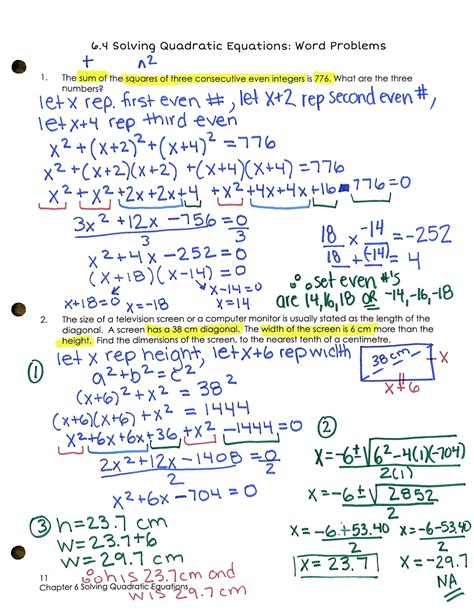 6.4 Solving Quadratic Equations: Word Problems
+ n^2
1. The sum of the squares of three consecutive even integers is 776. What are the three
numbers?
let x rep. first even #, let x+2 rep second even #,
let x+4 rep third even
x² + (x+2)² + (x+4)² = 776
x² + (x+2)(x+2) + (x+4)(x+4) = 776
x² + x² + 2x + 2x + 4 + x² + 4x + 4x + 16 - 776 = 0
3x² + 12x - 756 = 0
3 3
x² + 4x - 252 = 0
(x+18)(x-14) = 0
x+18=0 x=-18
x-14=0
x=14
18 x -14 = -252
18 + (-14) = 4
∴ set even #'s
are 14,16,18 OR -14,-16,-18
2. The size of a television screen or a computer monitor is usually stated as the length of the
diagonal. A screen has a 38 cm diagonal. The width of the screen is 6 cm more than the
height. Find the dimensions of the screen, to the nearest tenth of a centimetre.
let x rep height, let x+6 rep width
38 cm
x
x+6
① a² + b² = c²
(x+6)² + x² = 38²
(x+6)(x+6) + x² = 1444
x² + 6x + 6x + 36 + x² - 1444 = 0
2x² + 12x - 1408 = 0
2 2
x² + 6x - 704 = 0
②
x = -6 ± √6² - 4(1)(-704)
2(1)
x = -6 ± √2852
2
x = -6 + 53.40
2
x = 23.7
x = -6 - 53.40
2
x = -29.7
NA
③ h = 23.7 cm
w = 23.7 + 6
w = 29.7 cm
∴ h is 23.7cm and
w is 29.7 cm
11
Chapter 6 Solving Quadratic Equations